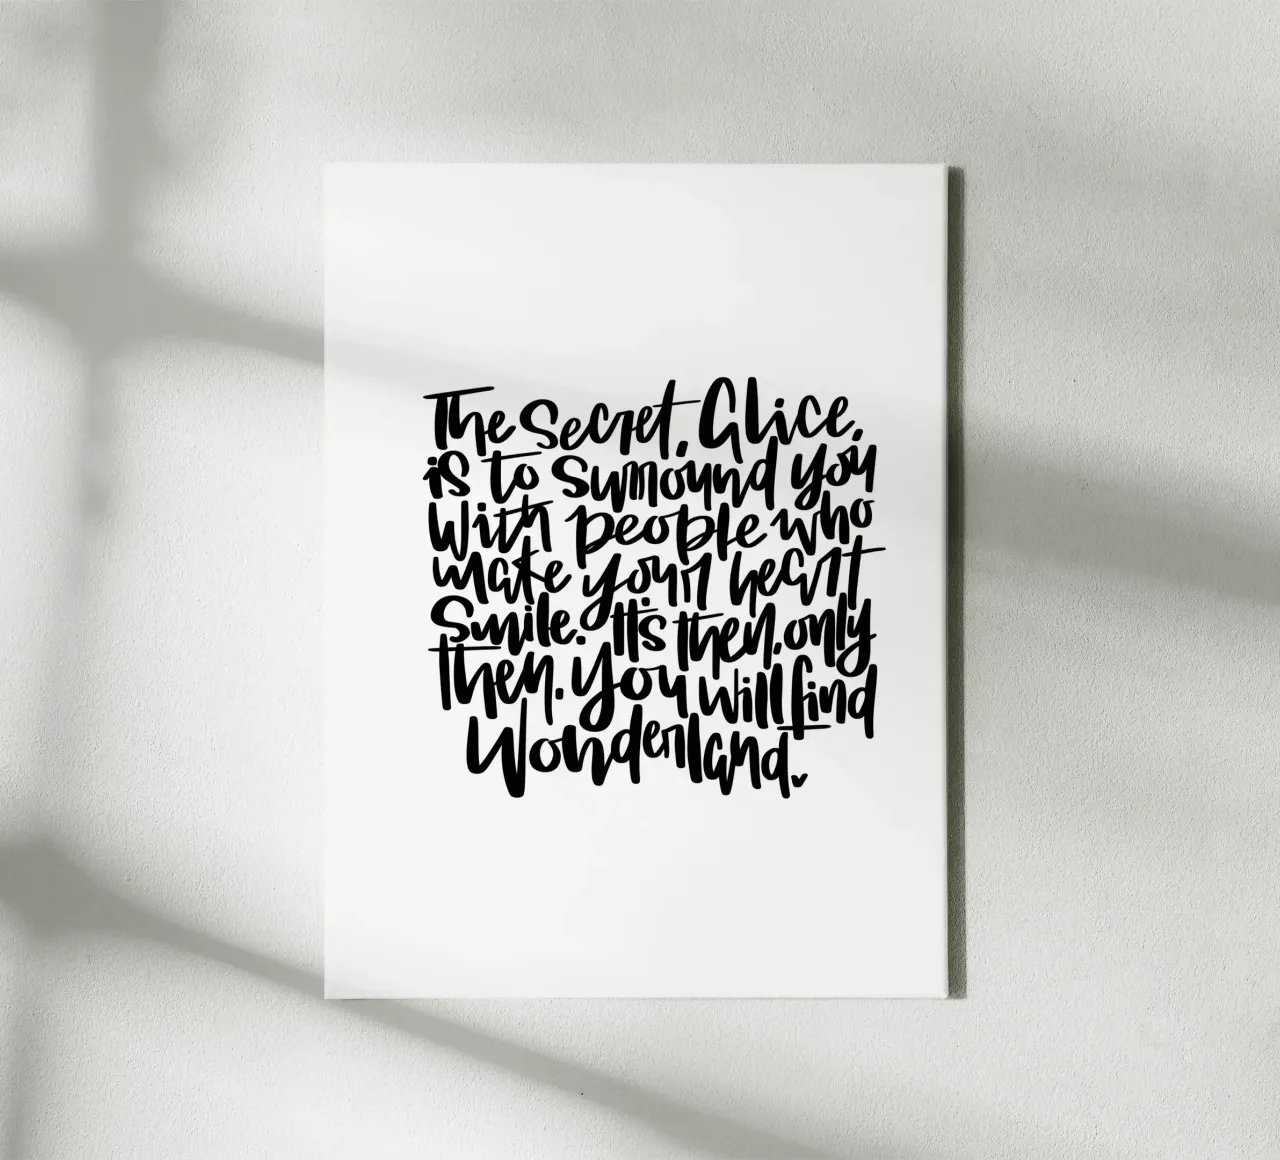 The Secret, Alice,
is to surround you
with people who
make your heart
smile. It's then, only
then, you will find
Wonderland.